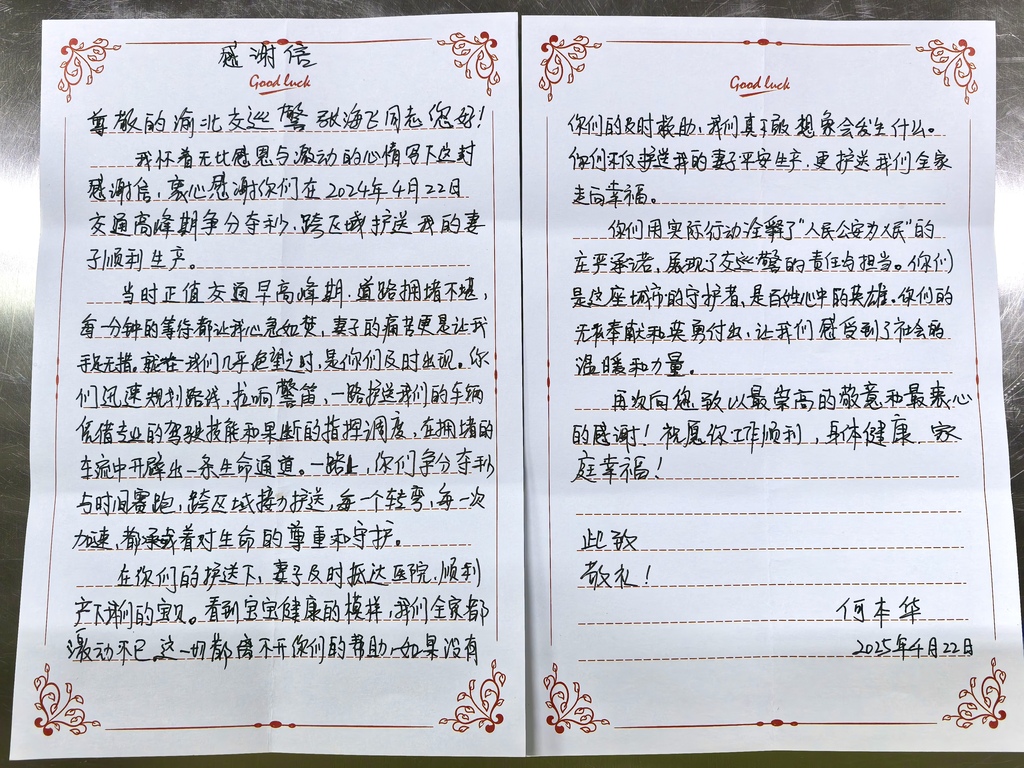 感谢信
Good luck
尊敬的渝北交巡警张海飞同志您好！
我怀着无比感恩与激动的心情写下这封
感谢信，衷心感谢你们在2024年4月22日
交通高峰期争分夺秒、跨区域护送我的妻
子顺利生产。
当时正值交通早高峰期，道路拥堵不堪，
每一分钟的等待都让我心急如焚，妻子的痛苦更是让我
手足无措。就在我们几乎绝望之时，是你们及时出现。你
们迅速规划路线，拉响警笛，一路护送我们的车辆
凭借专业的驾驶技能和果断的指挥调度，在拥堵的
车流中开辟出一条生命通道。一路上，你们争分夺秒
与时间赛跑，跨区域接力护送，每一个转弯，每一次
加速，都承载着对生命的尊重和守护。
在你们的护送下，妻子及时抵达医院，顺利
产下我们的宝贝。看到宝宝健康的模样，我们全家都
激动不已，这一切都离不开你们的帮助，如果没有
Good luck
你们的及时救助，我们真不敢想象会发生什么。
你们不仅护送我的妻子平安生产，更护送我们全家
走向幸福。
你们用实际行动诠释了"人民公安为人民"的
庄严承诺，展现了交巡警的责任与担当。你们
是这座城市的守护者，是百姓心中的英雄。你们的
无私奉献和英勇付出，让我们感受到了社会的
温暖和力量。
再次向您致以最崇高的敬意和最衷心
的感谢！祝愿你工作顺利，身体健康，家
庭幸福！
此致
敬礼！
何本华
2025年4月22日